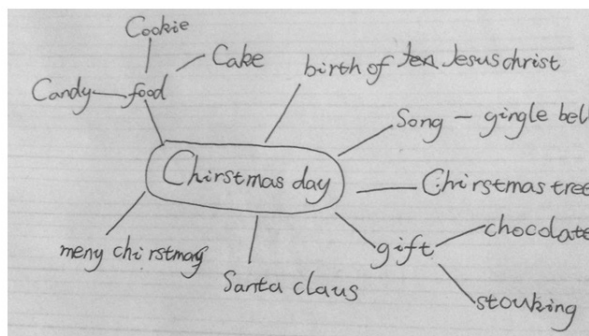 Cookie
Cake
Candy
food
birth of Jesus christ
Song - gingle bell
Chirstmas day
Chirstmas tree
gift
chocolate
stouking
meny chirstmas
Santa claus